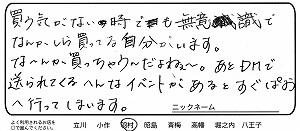 買う気がない時でも無意識で
なんかしら買ってる自分がいます。
な〜んか買っちゃうんだよね〜。あとDMで
送られてくるへんなイベントがあるとすぐぱぱっ
へ行ってしまいます。
ニックネーム
よく利用されるお店を
○で囲んでください。
立川 小作 羽村 昭島 青梅 高幡 堀之内 八王子